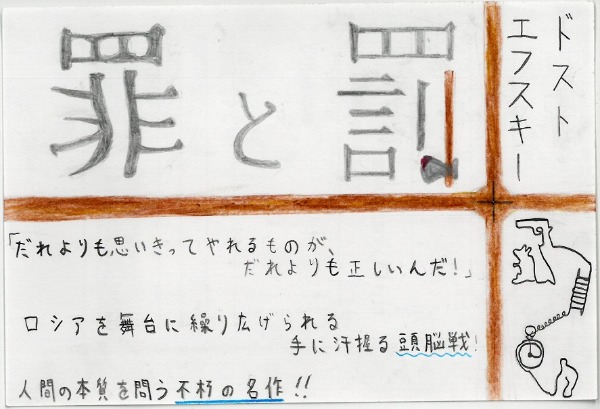 罪と罰
ドスト
エフスキー
「だれよりも思いきってやれるものが、
だれよりも正しいんだ！」
ロシアを舞台に繰り広げられる
手に汗握る頭脳戦！
人間の本質を問う不朽の名作！！